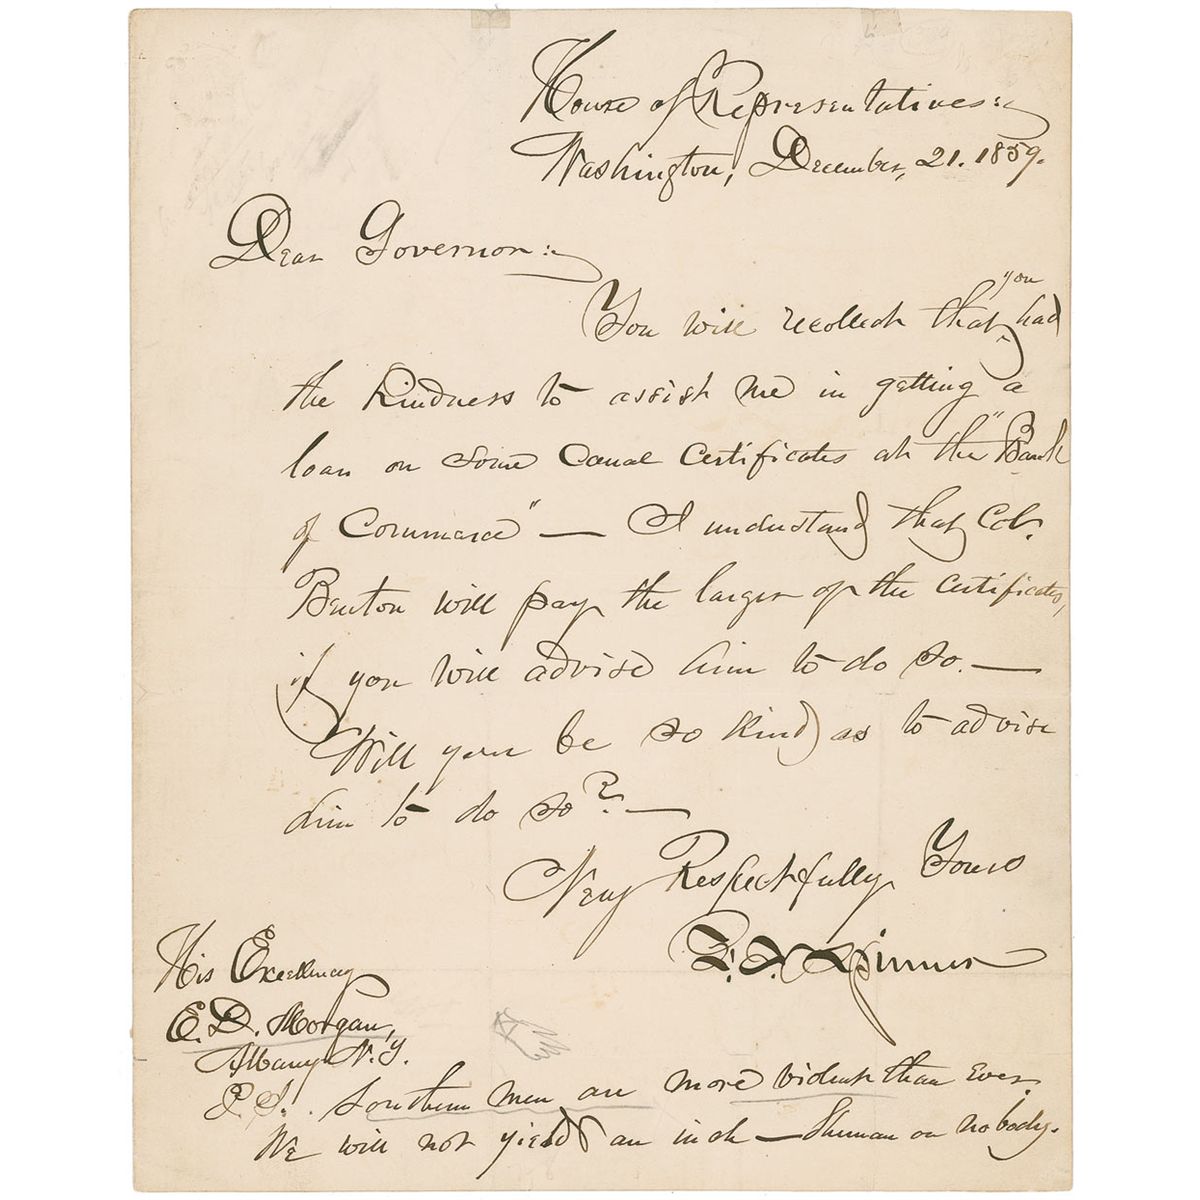 House of Representatives:
Washington, December, 21. 1859.
Dear Governor:
you
You will recollect that had
the kindness to assist me in getting a
loan on some Canal Certificates at the "Bank
of Commerce" — I understand that Col.
Benton will pay the larger of the certificates,
if you will advise him to do so. —
Will you be so kind as to advise
him to do so? —
Very Respectfully Yours
F. E. Spinner
His Excellency
E. D. Morgan,
Albany N. Y.
P. S. Southern men are more violent than Ever.
We will not yield an inch — Sherman or nobody.